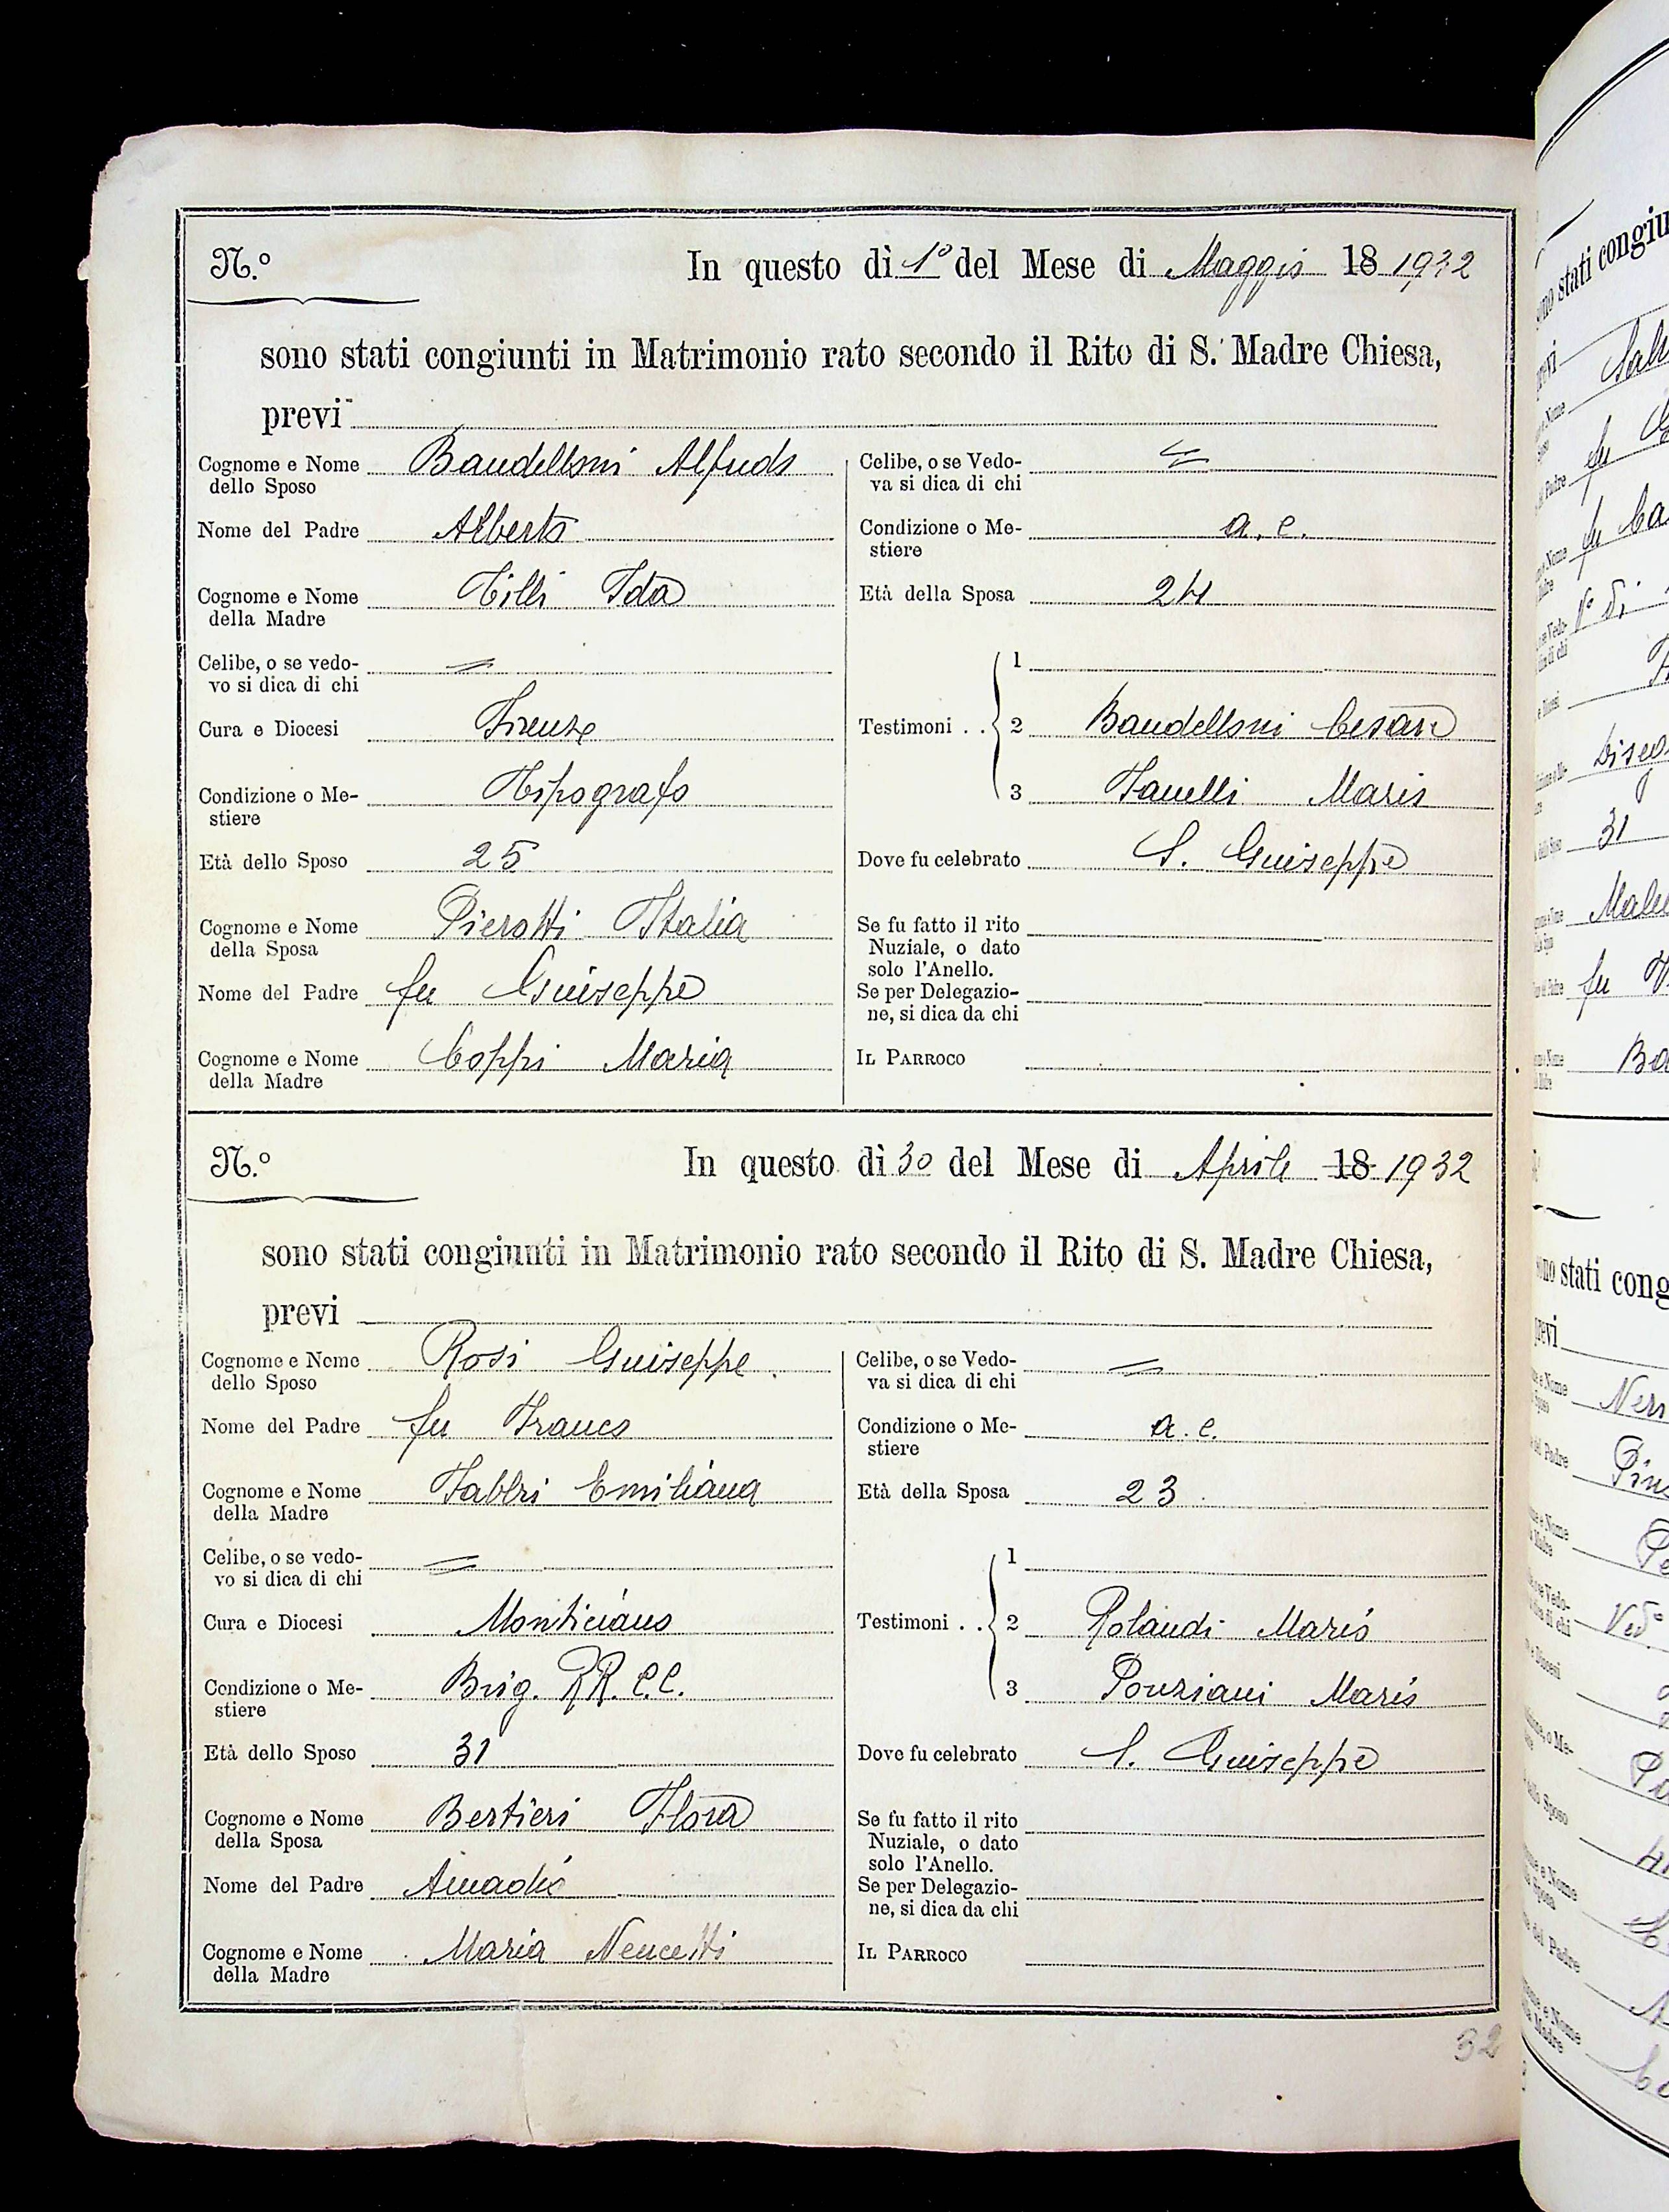 N.º In questo dì 1º del Mese di Maggio 18 1932
sono stati congiunti in Matrimonio rato secondo il Rito di S. Madre Chiesa,
previ
Cognome e Nome dello Sposo Baudelloni Alfredo
Nome del Padre Alberto
Cognome e Nome della Madre Tilli Ida
Celibe, o se vedo-
vo si dica di chi =
Cura e Diocesi Firenze
Condizione o Me-
stiere Tipografo
Età dello Sposo 25
Cognome e Nome della Sposa Pierotti Italia
Nome del Padre fu Giuseppe
Cognome e Nome della Madre Coppi Maria
Celibe, o se Vedo-
va si dica di chi =
Condizione o Me-
stiere a. c.
Età della Sposa 24
Testimoni . . 1
2 Baudelloni Cesare
3 Fanelli Mario
Dove fu celebrato S. Giuseppe
Se fu fatto il rito
Nuziale, o dato
solo l'Anello.
Se per Delegazio-
ne, si dica da chi
Il Parroco
N.º In questo dì 30 del Mese di Aprile 18 1932
sono stati congiunti in Matrimonio rato secondo il Rito di S. Madre Chiesa,
previ
Cognome e Nome dello Sposo Rosi Giuseppe
Nome del Padre fu Franco
Cognome e Nome della Madre Fabbri Emiliana
Celibe, o se vedo-
vo si dica di chi =
Cura e Diocesi Monticiano
Condizione o Me-
stiere Brig. RR. C.C.
Età dello Sposo 31
Cognome e Nome della Sposa Bertieri Flora
Nome del Padre Amadio
Cognome e Nome della Madre Maria Nencetti
Celibe, o se Vedo-
va si dica di chi =
Condizione o Me-
stiere a. c.
Età della Sposa 23
Testimoni . . 1
2 Rolandi Mario
3 Ponziani Mario
Dove fu celebrato S. Giuseppe
Se fu fatto il rito
Nuziale, o dato
solo l'Anello.
Se per Delegazio-
ne, si dica da chi
Il Parroco
32